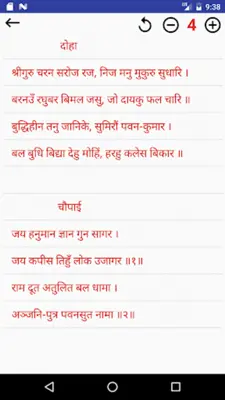 9:38
4
दोहा
श्रीगुरु चरन सरोज रज, निज मनु मुकुरु सुधारि ।
बरनउँ रघुबर बिमल जसु, जो दायकु फल चारि ॥
बुद्धिहीन तनु जानिके, सुमिरौं पवन-कुमार ।
बल बुधि बिद्या देहु मोहिं, हरहु कलेस बिकार ॥
चौपाई
जय हनुमान ज्ञान गुन सागर ।
जय कपीस तिहुँ लोक उजागर ॥१॥
राम दूत अतुलित बल धामा ।
अञ्जनि-पुत्र पवनसुत नामा ॥२॥